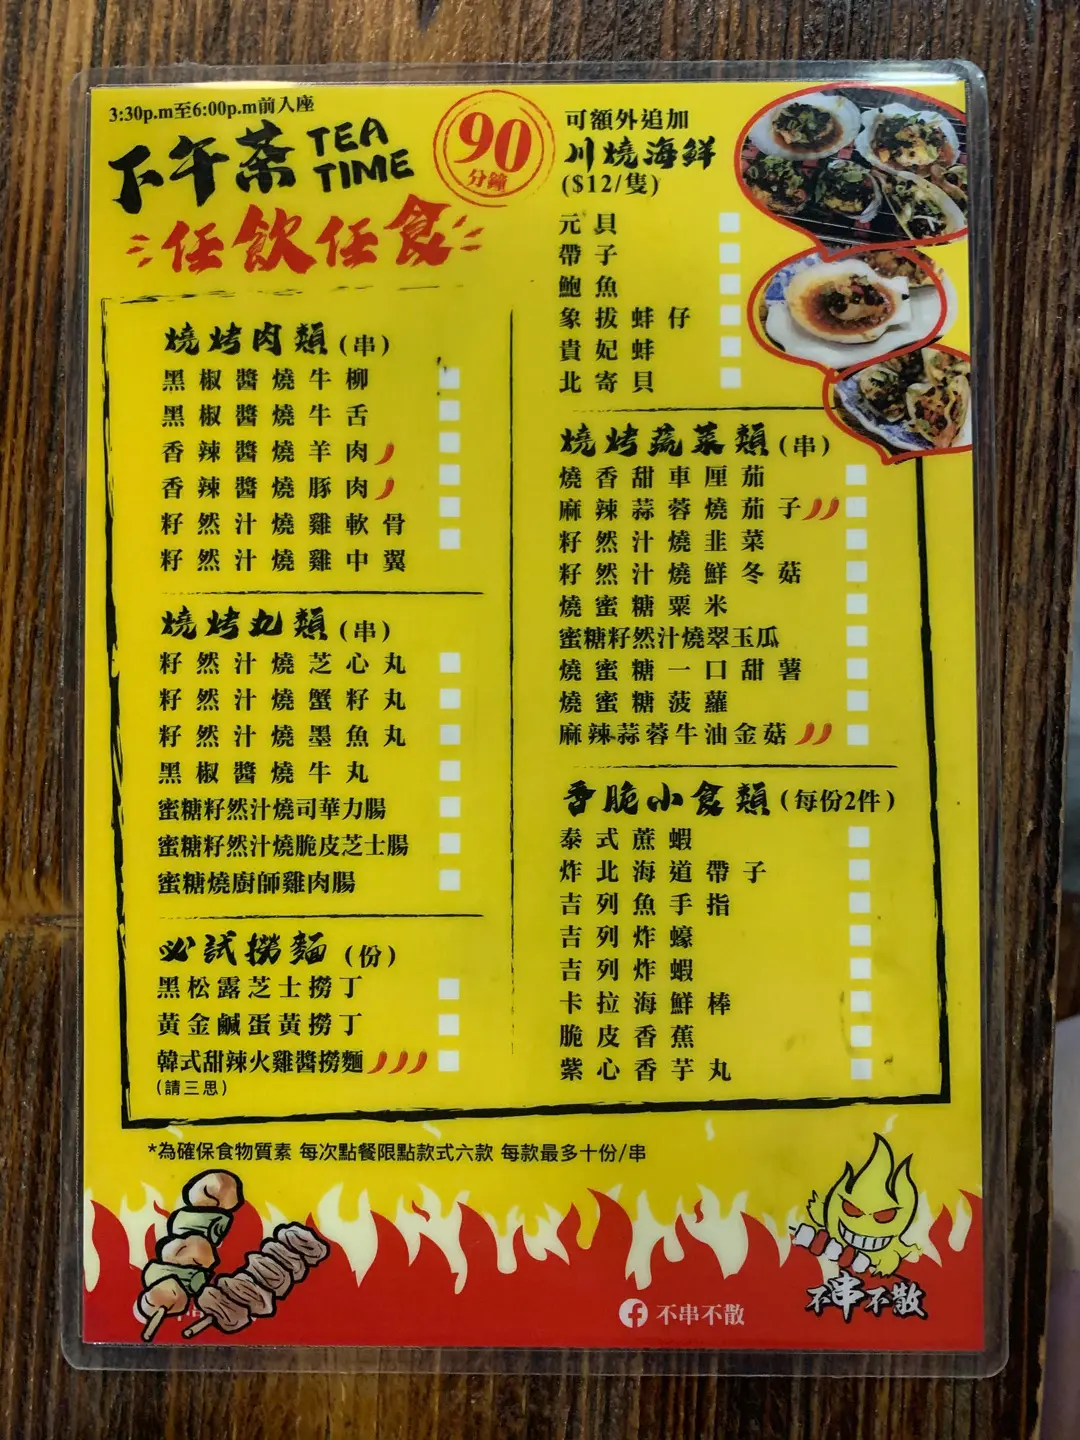 3:30p.m至6:00p.m前入座
下午茶 TEA TIME
任飲任食
90
分鐘
燒烤肉類(串)
黑椒醬燒牛柳
黑椒醬燒牛舌
香辣醬燒羊肉
香辣醬燒豚肉
籽然汁燒雞軟骨
籽然汁燒雞中翼
燒烤丸類(串)
籽然汁燒芝心丸
籽然汁燒蟹籽丸
籽然汁燒墨魚丸
黑椒醬燒牛丸
蜜糖籽然汁燒司華力腸
蜜糖籽然汁燒脆皮芝士腸
蜜糖燒廚師雞肉腸
必試撈麵(份)
黑松露芝士撈丁
黃金鹹蛋黃撈丁
韓式甜辣火雞醬撈麵
(請三思)
可額外追加
川燒海鮮
($12/隻)
元貝
帶子
鮑魚
象拔蚌仔
貴妃蚌
北寄貝
燒烤蔬菜類(串)
燒香甜車厘茄
麻辣蒜蓉燒茄子
籽然汁燒韭菜
籽然汁燒鮮冬菇
燒蜜糖粟米
蜜糖籽然汁燒翠玉瓜
燒蜜糖一口甜薯
燒蜜糖菠蘿
麻辣蒜蓉牛油金菇
香脆小食類(每份2件)
泰式蔗蝦
炸北海道帶子
吉列魚手指
吉列炸蠔
吉列炸蝦
卡拉海鮮棒
脆皮香蕉
紫心香芋丸
*為確保食物質素 每次點餐限點款式六款 每款最多十份/串
不串不散
不串不散